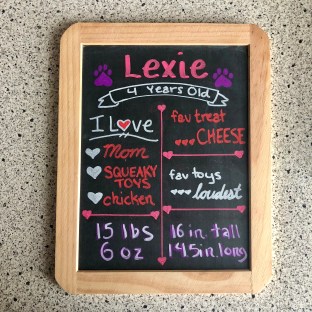 Lexie
4 Years Old
I Love
Mom
SQUEAKY
TOYS
chicken
fav treat
CHEESE
fav toys
loudest
15 lbs
6 oz
16 in tall
14.5 in. long